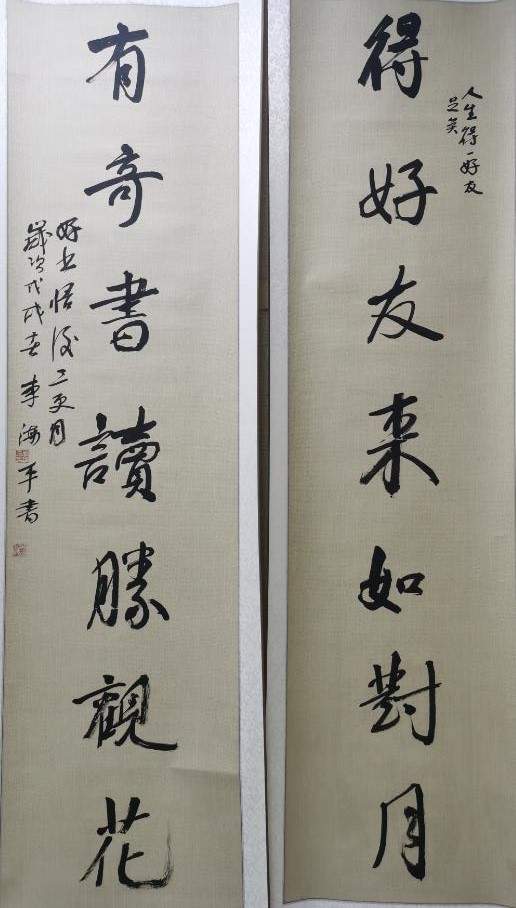 得好友来如對月
人生得一好友
足矣
有奇書讀勝觀花
好书悟後三更月
歲次戊戌春 東海平書